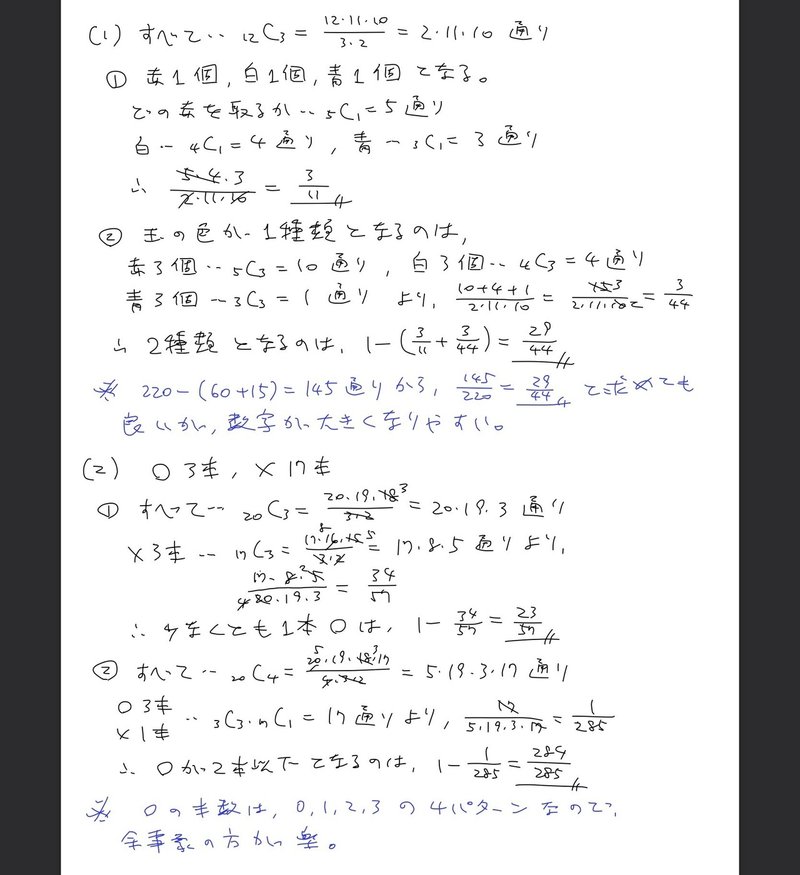 (1) すべて… ₁₂C₃ = 12·11·10/3·2 = 2·11·10 通り
① 赤1個, 白1個, 青1個となる。
どの赤を取るか… ₅C₁ = 5 通り
白… ₄C₁ = 4 通り, 青… ₃C₁ = 3 通り
∴ 5·4·3/2·11·10 = 3/11
② 玉の色が1種類となるのは,
赤3個… ₅C₃ = 10 通り, 白3個… ₄C₃ = 4 通り
青3個… ₃C₃ = 1 通り より, 10+4+1/2·11·10 = 15 3/2·11·10 2 = 3/44
∴ 2種類となるのは, 1-(3/11+3/44) = 29/44
※ 220-(60+15) = 145 通りから, 145/220 = 29/44 で求めても
良いが, 数字が大きくなりやすい。
(2) ○ 3本, × 17本
① すべて… ₂₀C₃ = 20·19·18 3/3·2 = 20·19·3 通り
× 3本… ₁₇C₃ = 17·16 8·15 5/3·2 = 17·8·5 通りより,
17·8 2·5/4 20·19·3 = 34/57
∴ 少なくとも1本○は, 1-34/57 = 23/57
② すべて… ₂₀C₄ = 20 5·19·18 3·17/4·3·2 = 5·19·3·17 通り
○ 3本
× 1本 … ₃C₃·₁₇C₁ = 17 通りより, 17/5·19·3·17 = 1/285
∴ ○が2本以下となるのは, 1-1/285 = 284/285
※ ○の本数は, 0, 1, 2, 3 の4パターンなので,
余事象の方が楽。